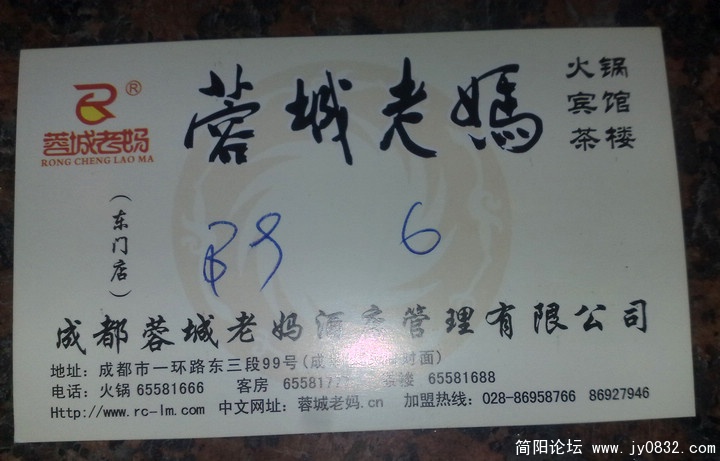 R®
蓉城老妈
RONG CHENG LAO MA
蓉城老媽
火锅
宾馆
茶楼
（东门店）
B9 6
成都蓉城老妈酒店管理有限公司
地址: 成都市一环路东三段99号(成 对面)
电话: 火锅 65581666 客房 6558177 茶楼 65581688
Http://www.rc-lm.com 中文网址: 蓉城老妈.cn 加盟热线: 028-86958766 86927946
简阳论坛 www.jy0832.com